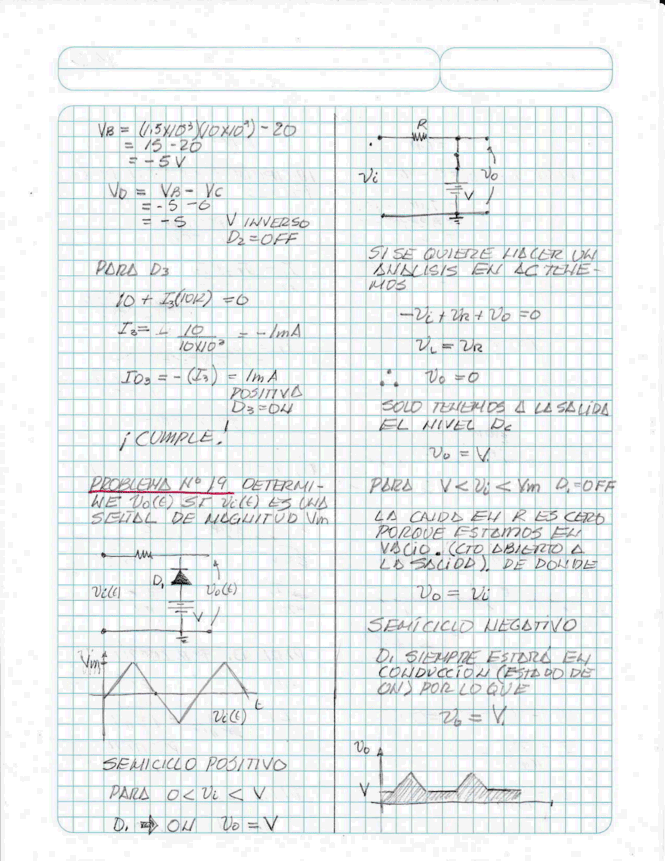 VB = (1,5x10³)(10x10³) - 20
= 15 - 20
= - 5 V
VD = VB - VC
= - 5 - 6
= - 5 V INVERSO
D2 = OFF
PARA D3
10 + I3(10K) = 0
I3 = - 10 / 10x10³ = - 1mA
ID3 = - (I3) = 1mA
POSITIVA
D3 = ON
¡ CUMPLE !
PROBLEMA Nº 19 DETERMI-
NE Vo(t) SI Vi(t) ES UNA
SEÑAL DE MAGNITUD Vm
D1
Vi(t)
Vo(t)
V
Vm
t
Vi(t)
SEMICICLO POSITIVO
PARA 0 < Vi < V
D1 ⇒ ON Vo = V
R
Vi
Vo
V
SI SE QUIERE HACER UN
ANALISIS EN AC TENE-
MOS
- Vi + VR + Vo = 0
VL = VR
∴ Vo = 0
SOLO TENEMOS A LA SALIDA
EL NIVEL DC
Vo = V
PARA V < Vi < Vm D1 = OFF
LA CAIDA EN R ES CERO
PORQUE ESTAMOS EN
VACIO. (CTO ABIERTO A
LA SALIDA). DE DONDE
Vo = Vi
SEMICICLO NEGATIVO
D1 SIEMPRE ESTARÁ EN
CONDUCCION (ESTADO DE
ON) POR LO QUE
Vo = V
Vo
V